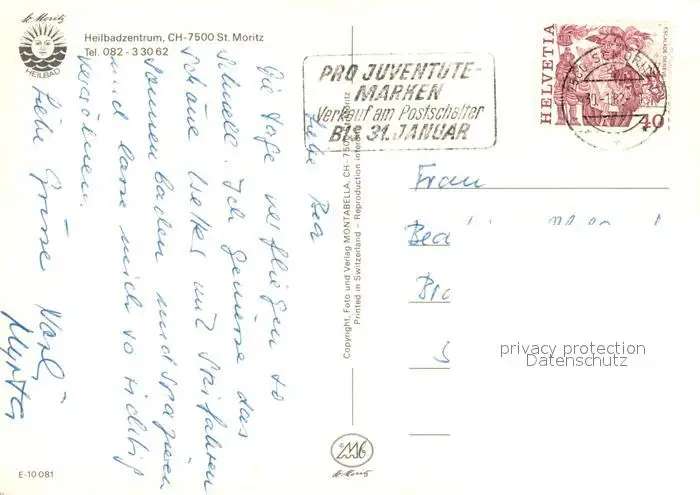 St. Moritz
HEILBAD
Heilbadzentrum, CH-7500 St. Moritz
Tel. 082 - 3 30 62
Liebe Bea
Die Tage verfliegen so
schnell. Ich geniesse das
schöne Wetter mit Skifahren
Sonnenbaden und spazieren
und lasse mich so richtig
verwöhnen.
Liebe Grüsse
Myrta
E-10 081
Copyright, Foto und Verlag MONTABELLA, CH-7500 St. Moritz
Printed in Switzerland – Reproduction interdite
St. Moritz
PRO JUVENTUTE-
MARKEN
Verkauf am Postschalter
BIS 31. JANUAR
HELVETIA
ESCALADE GENÈVE
40
Frau
Bea
privacy protection
Datenschutz